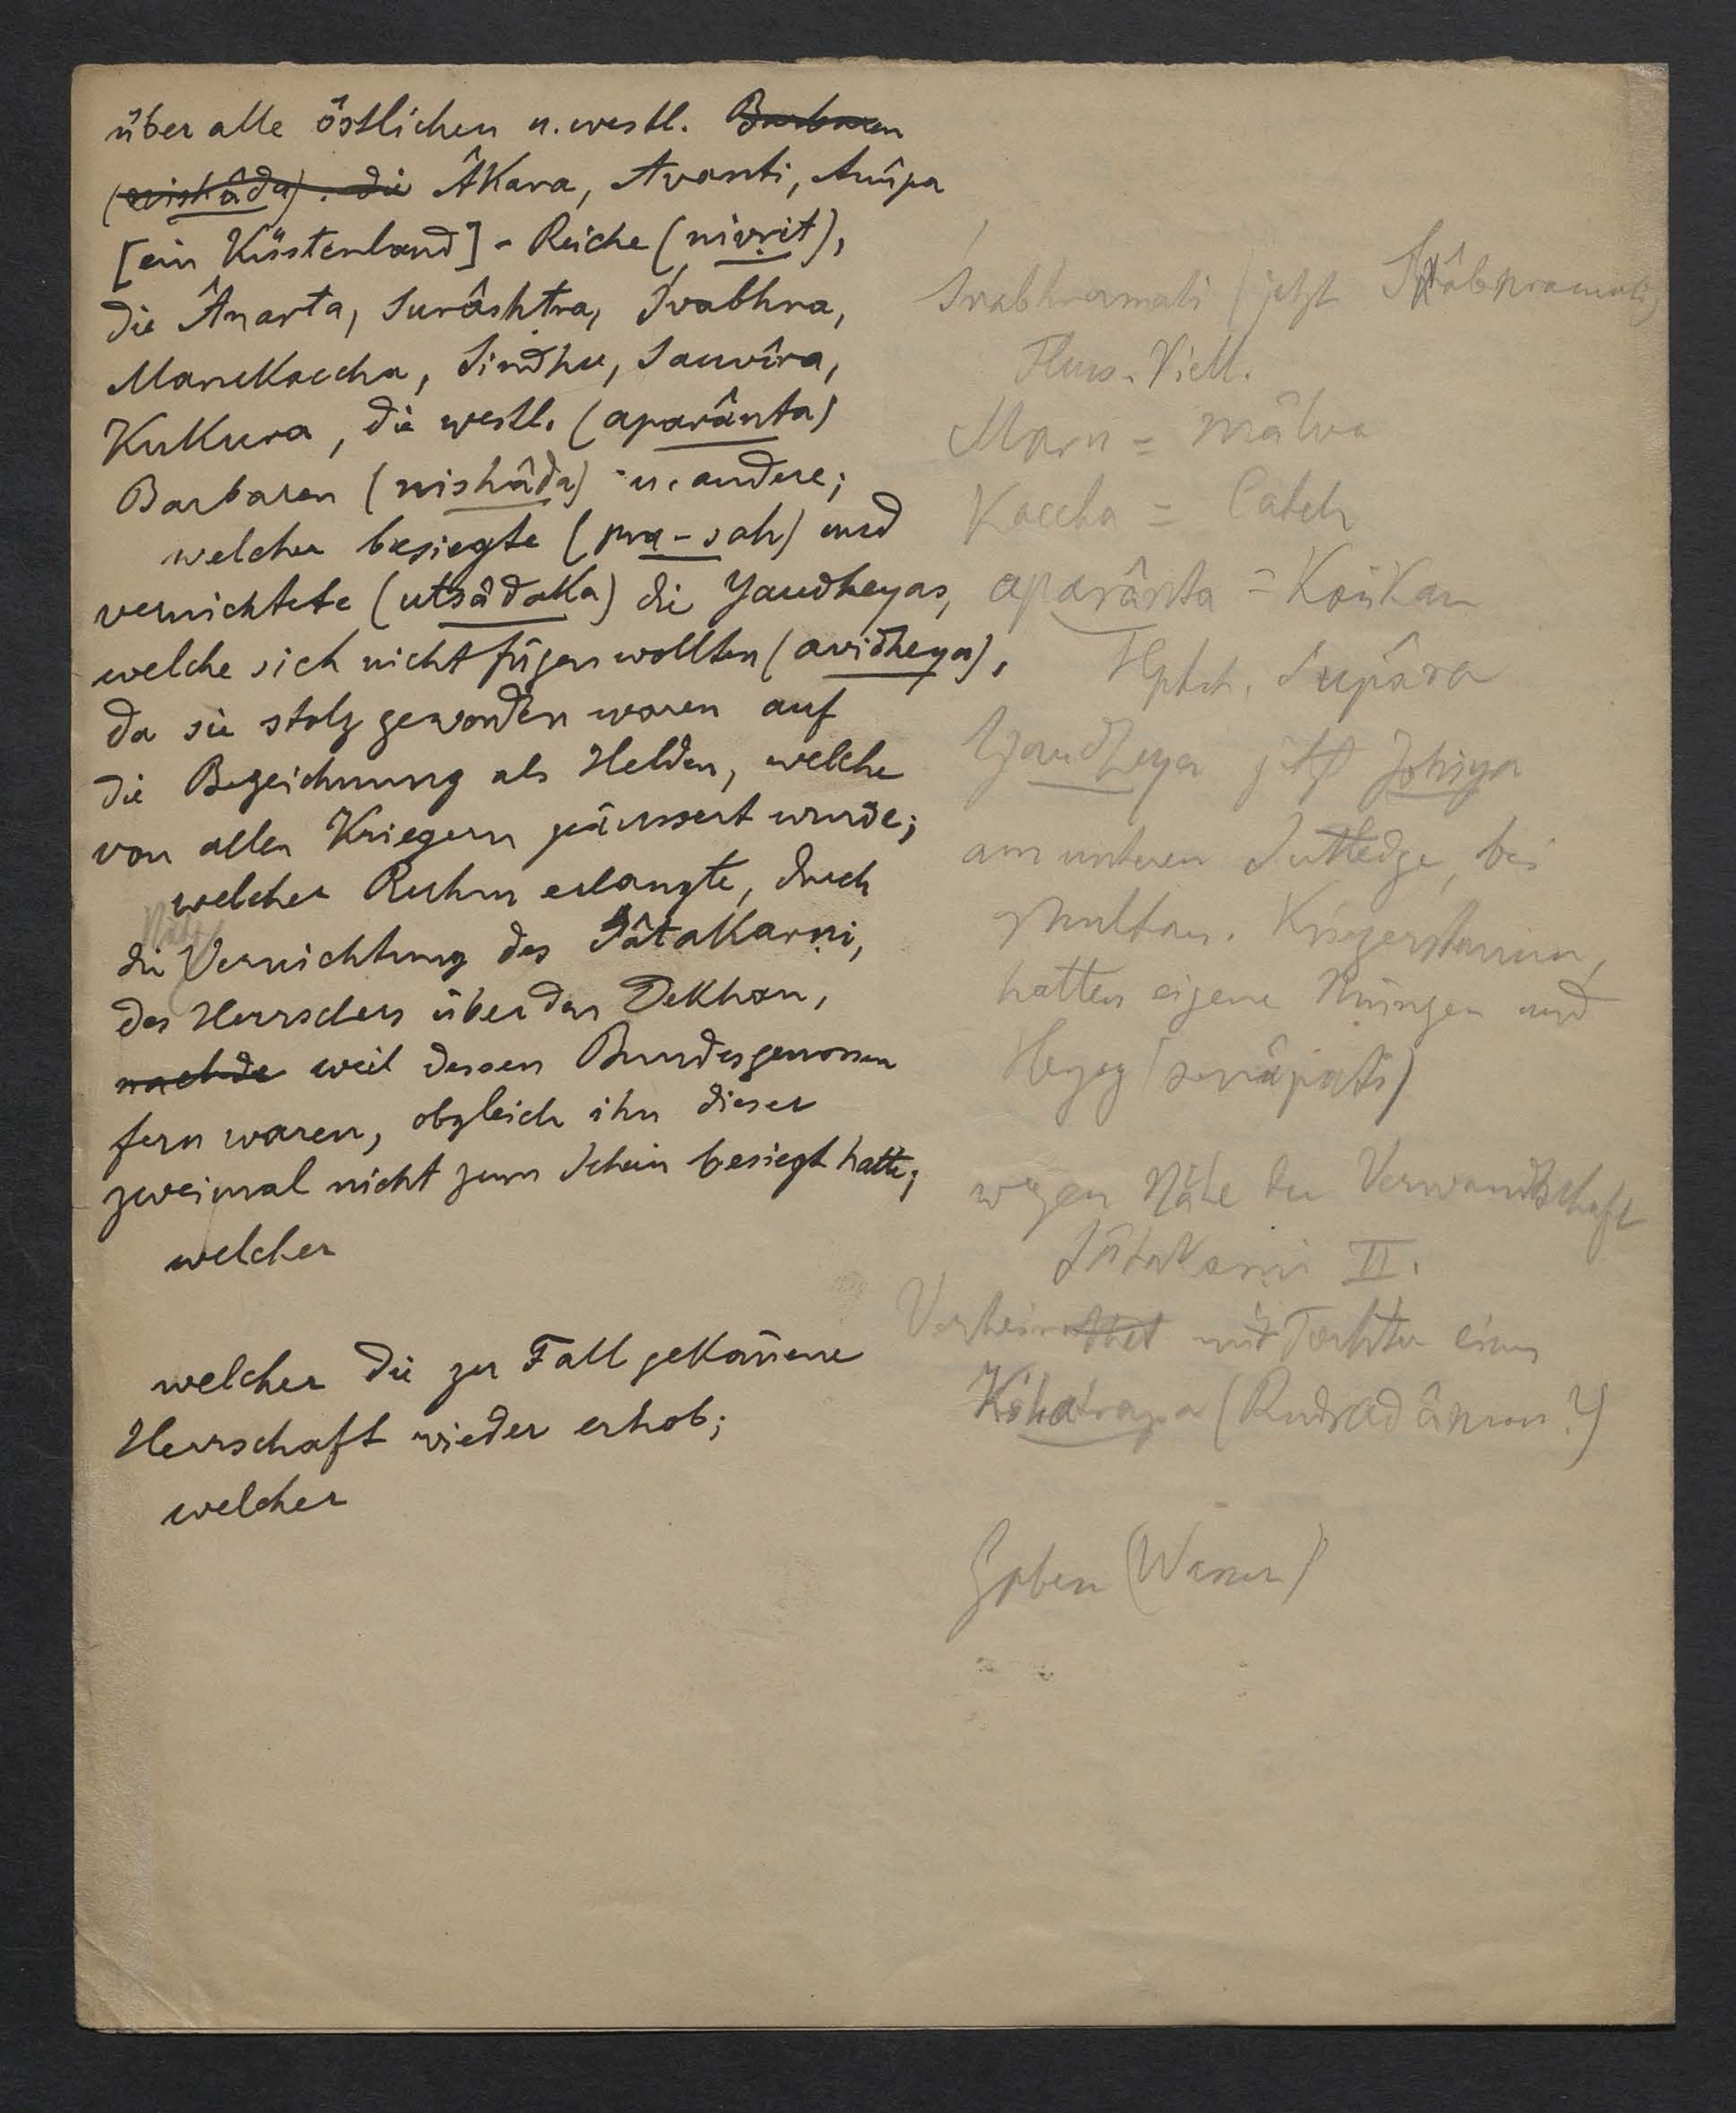 über alle östlichen u. westl. Barbaren
(nishâda). die Âkara, Avanti, Anûpa
[ein Küstenland] - Reiche (nivṛit),
die Ânarta, Surâshṭra, Śvabhra,
Marukaccha, Sindhu, Sauvîra,
Kukura, die westl. (aparânta)
Barbaren (nishâda) u. andere;
welcher besiegte (pra-sah) und
vernichtete (utsâdaka) die Yaudheyas,
welche sich nicht fügen wollten (avidheya),
da sie stolz geworden waren auf
die Bezeichnung als Helden, welche
von allen Kriegern geäussert wurde;
welcher Ruhm erlangte, durch
die Vernichtung des Sâtakarṇi,
des Herrschers über den Dekhan,
nachde weil dessen Bundesgenossen
fern waren, obgleich ihn dieser
zweimal nicht zum Schein besiegt hatte;
welcher
welcher die zu Fall gekom̄ene
Herrschaft wieder erhob;
welcher
Śvabhramati (jetzt
Fluss. Viell.
Maru = Mâlva
Kaccha = Catch
aparânta = Konkan
Hptst. Supâra
Yaudheya jetzt Johiya
am unteren Sutledge, bei
Multan. Kriegerstamm,
hatten eigene Münzen und
Herzog (senâpati)
wegen Nähe der Verwandtschaft
Sâtakarṇi II.
Verheirathet mit Tochter eines
Kshatrapa (Rudradâman?)
Gaben (Wasser)